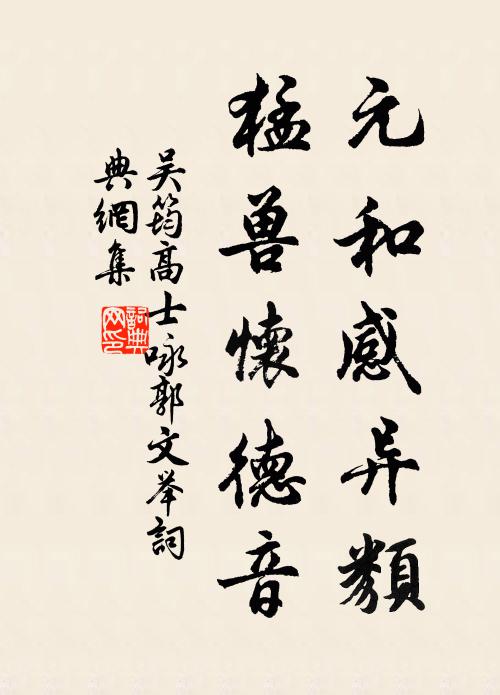 元和感异類
猛兽懷德音
吴筠高士咏郭文举詞
典網集
詞典
网印